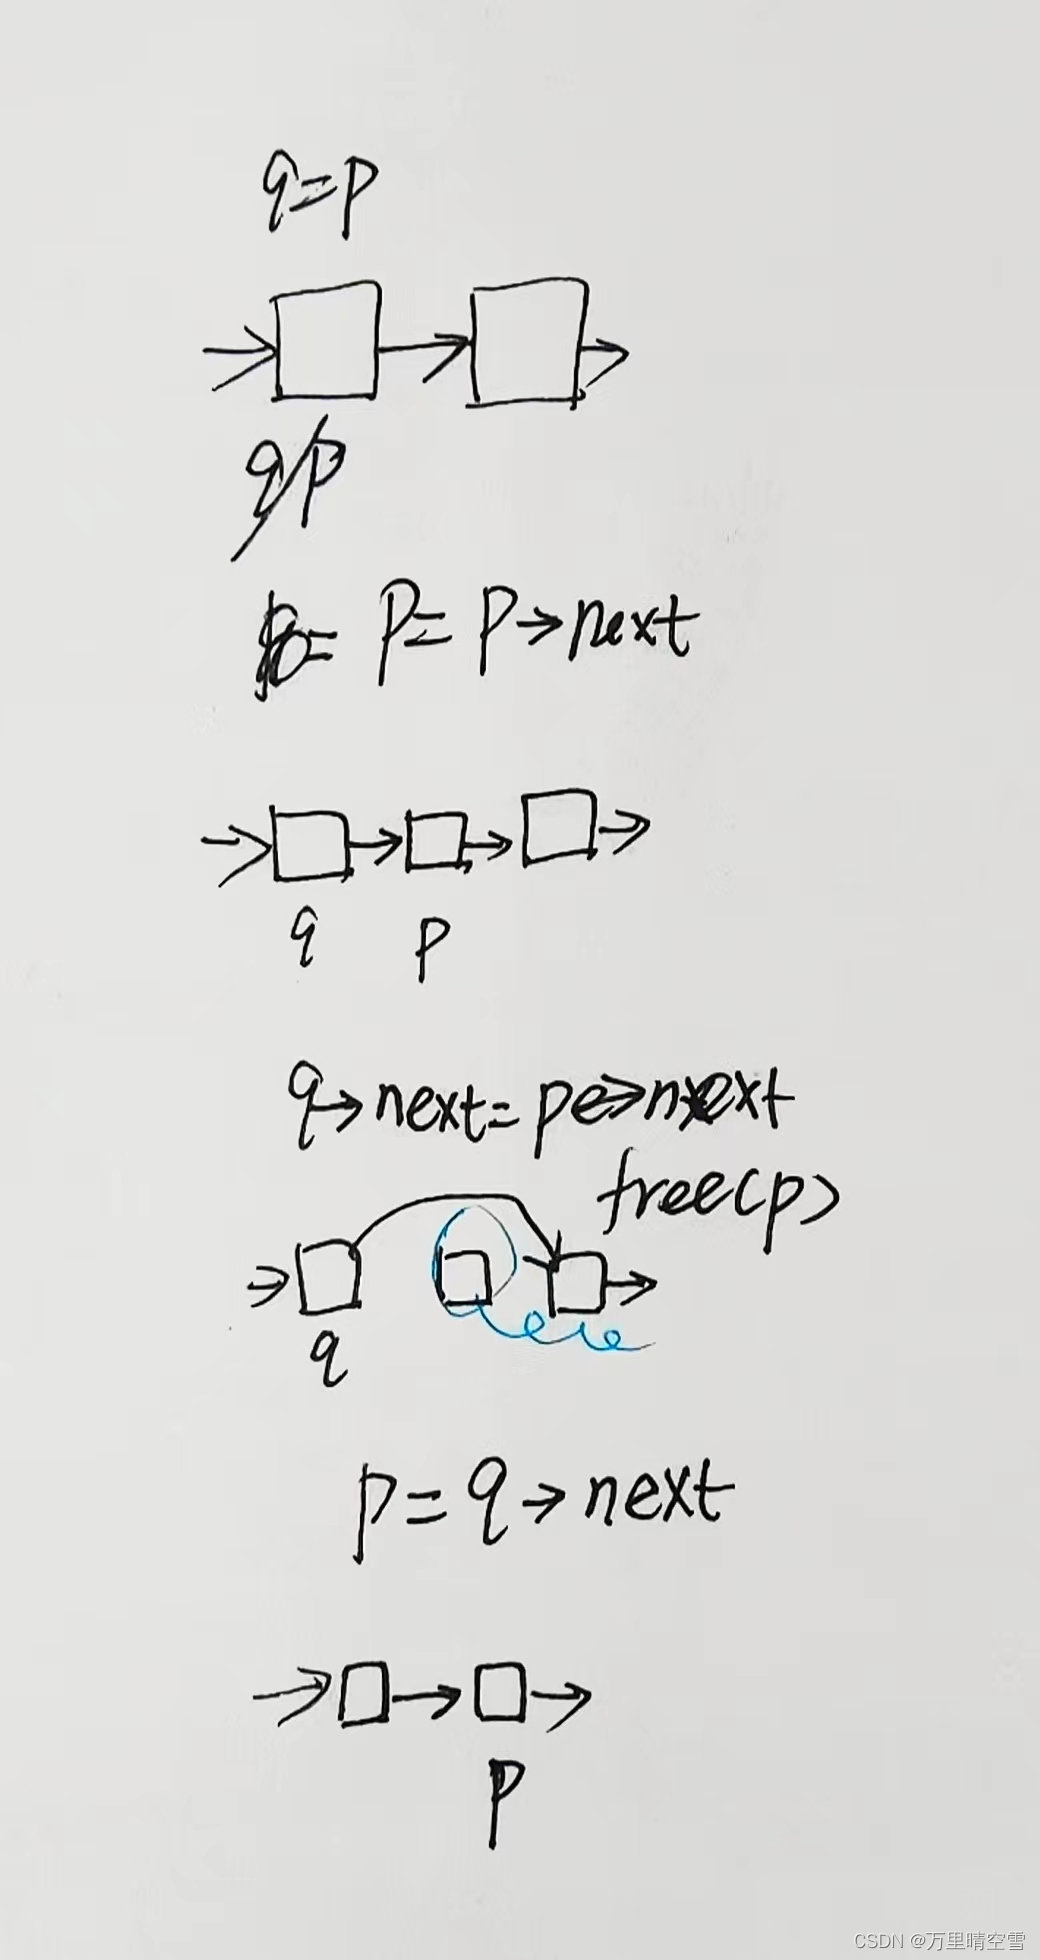 q=p
q/p
p=p→next
q
p
q→next=p→next
free(p)
q
p=q→next
p
CSDN @万里晴空雪